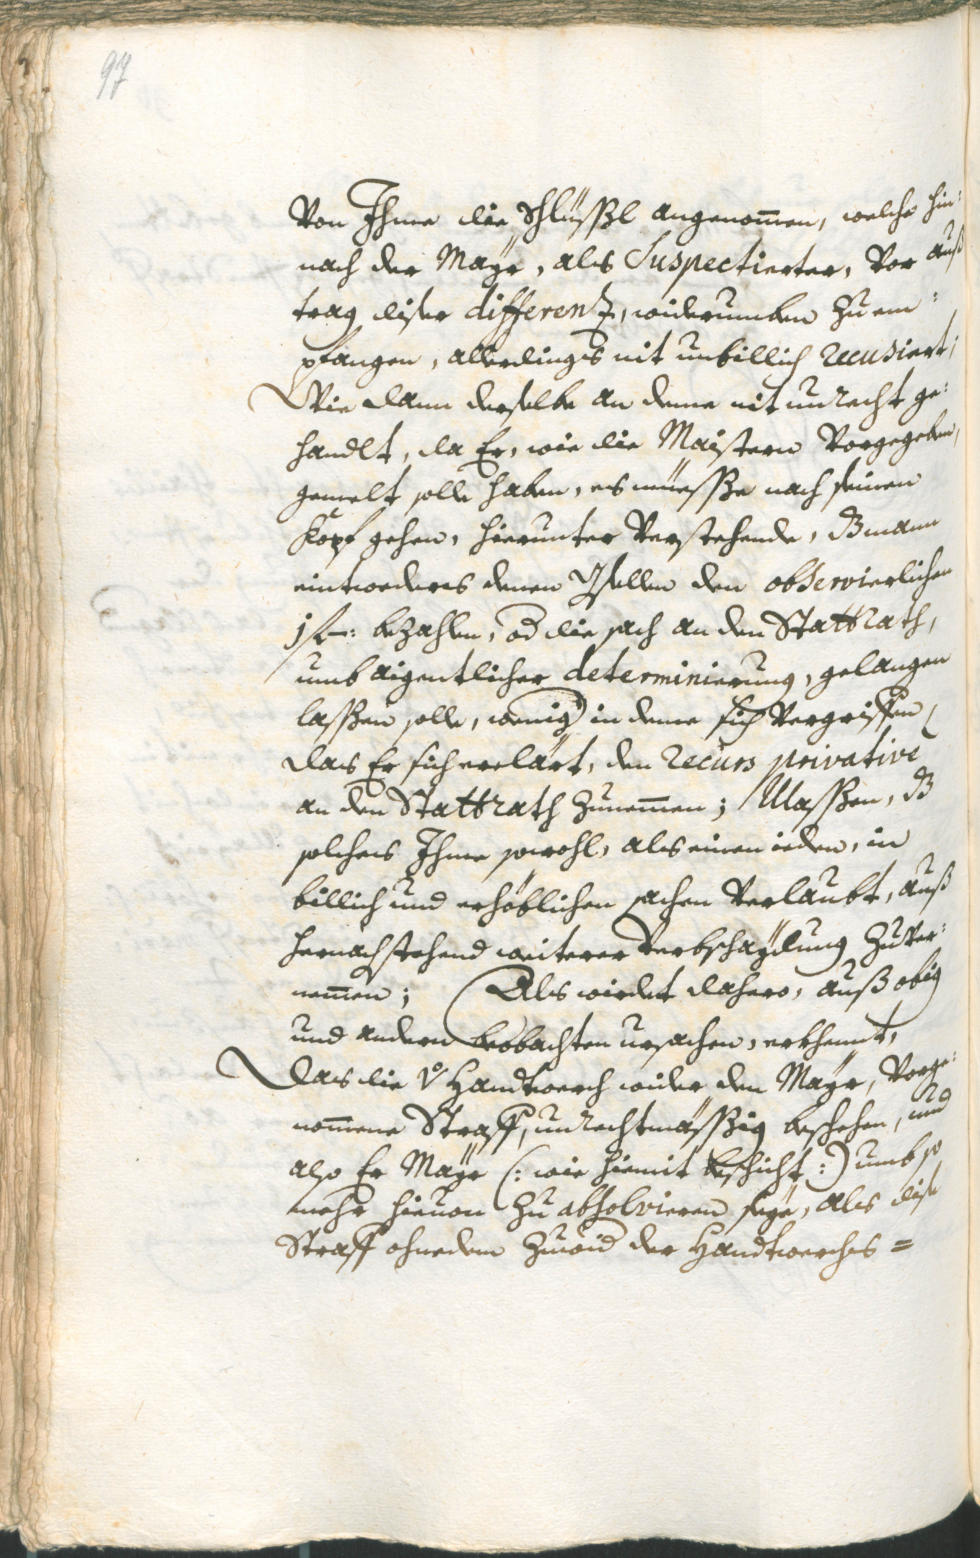 97
Von Ihme die Schlüssl angenom̅en, welche hin:
nach der Mayr, als Suspectierter, Vor auß
trag diser differentz, widerumben Zu em:
pfangen, allerdings nit unbillich recusiert;
Wie dann derselbe an deme nit unrecht ge:
handlt, da Er, wie die Maistern Vorgegeben,
gemelt solle haben, es müesse nach seinen
Kopf gehen, hierunter Verstehende, dß mann
eintweders denen Gsellen den observierlichen
1 f: bezahlen, od die sach an den Stattrath,
umb aigentlicher determinierung, gelangen
lassen solle, wenig in deme sich Vergriffen
das Er sich erclärt, den recurs privativè
an den Stattrath Zunem̅en; Massen, dß
solches Ihme sowohl, als einen ieden, in
billich und erhöblichen sachen Verlaubt, auß
hernachstehend weiterer Verbschaydung Zuver:
nem̅en; Als wirdet dahero, auß obig
und andern beobachten ursachen, erkhennt,
das die V Handtwerch wider den Mayr, Vorge:
nom̅ene Straff, unrechtmässig beschehen, und
also Er Mayr (: wie hiemit beschicht :) umb so
mehr hieuon Zu absolvieren seye, als dise
Straff ohnedem Zwid der Handtwerchs =